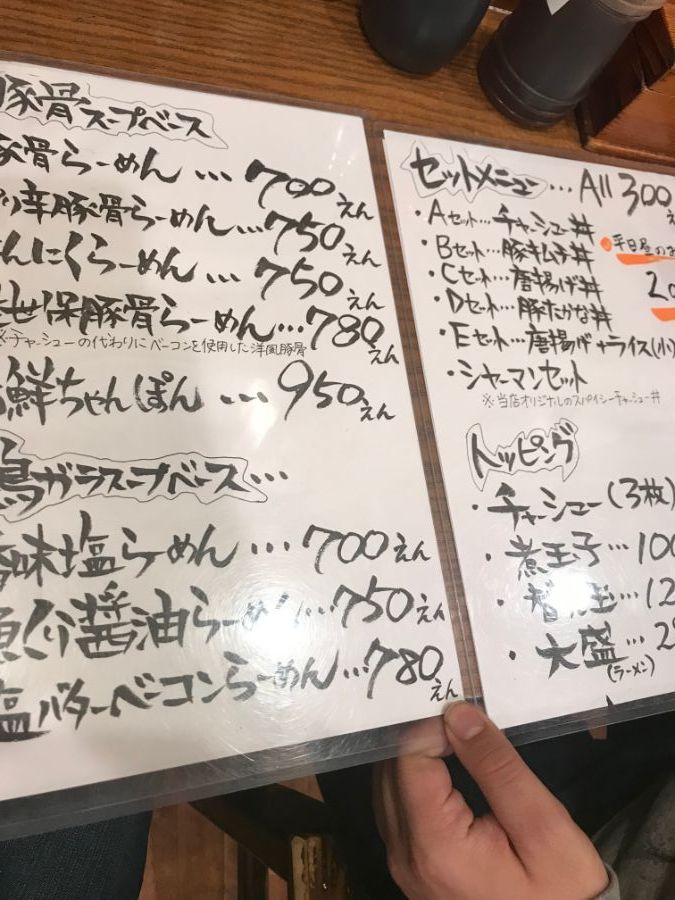 豚骨スープベース
豚骨らーめん … 700えん
辛豚骨らーめん … 750えん
にんにくらーめん … 750えん
世保豚骨らーめん … 780えん
※チャーシューの代わりにベーコンを使用した洋風豚骨
鮮ちゃんぽん … 950えん
鳥ガラスープベース …
味塩らーめん … 700えん
醤油らーめん … 750えん
塩バターベーコンらーめん … 780えん
セットメニュー … All 300え
・Aセット…チャーシュー丼
・Bセット…豚キムチ丼
平日昼の
・Cセット…唐揚げ丼
20
・Dセット…豚たかな丼
・Eセット…唐揚げ+ライス(小)
・シャーマンセット
※当店オリジナルのスパイシーチャーシュー丼
トッピング
・チャーシュー(3枚)
・煮玉子…100
・ … 12
・大盛 … 2
(ラーメン)